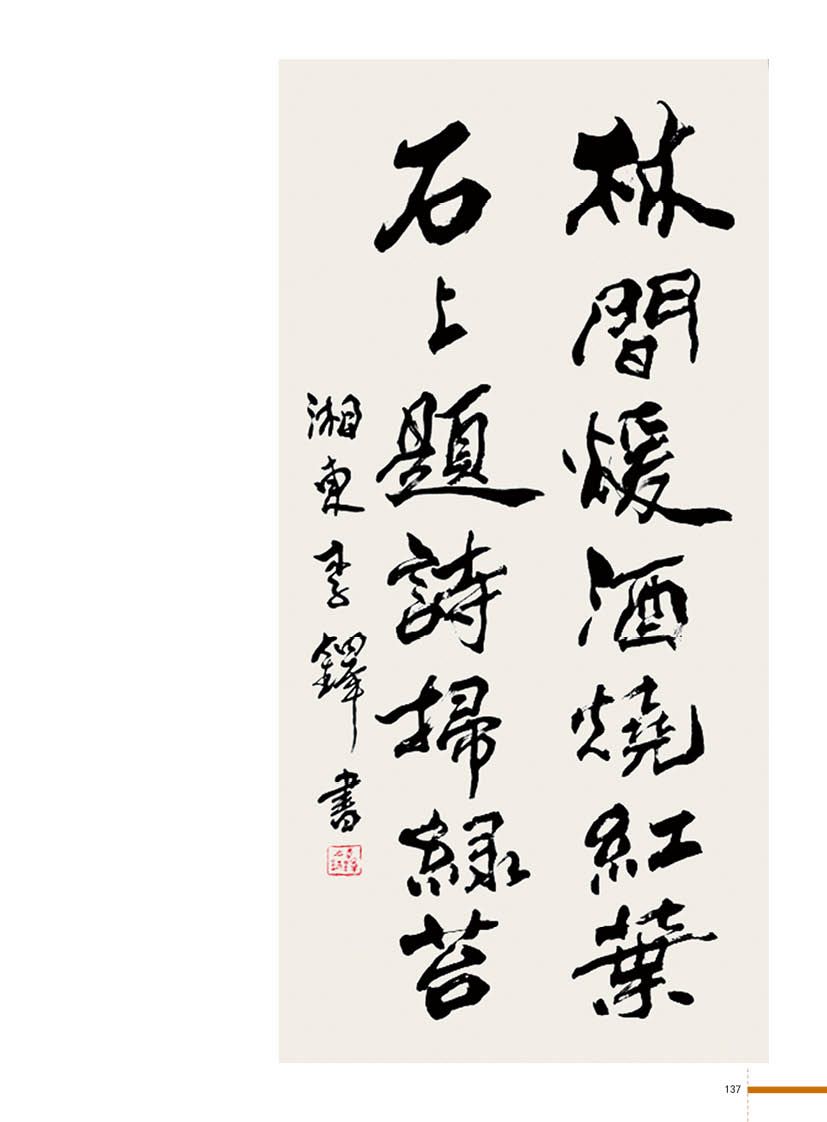 林間煖酒燒紅葉
石上題詩掃緑苔
湘東李鐸書
137